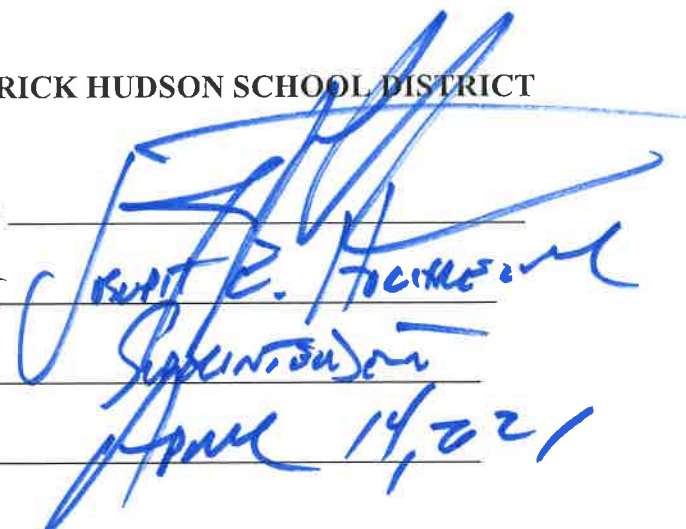 RICK HUDSON SCHOOL DISTRICT
Joseph E. Hochreiter
Superintendent
April 14, 2021